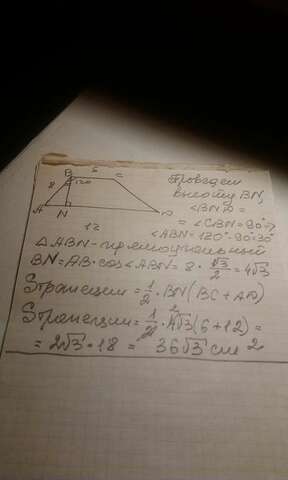 B 6 C
8 120
A N D
12
Проведем
высоту BN,
∠BND =
= ∠CBN = 90° ⇒
∠ABN = 120° - 90 = 30°
△ABN - прямоугольный
BN = AB · cos∠ABN = 8 · √3/2 = 4√3
Sтрапеции = 1/2 · BN (BC + AD)
Sтрапеции = 1/2 · 4√3 (6 + 12) =
= 2√3 · 18 = 36√3 см²